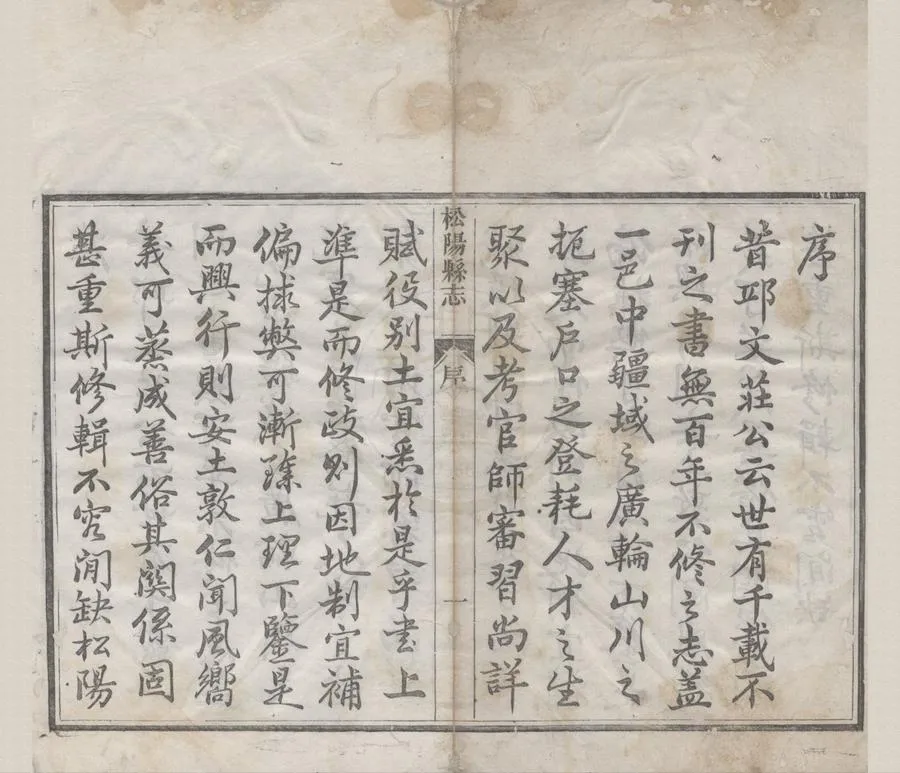 序
昔邱文莊公云世有千載不
刊之書無百年不修之志蓋
一邑中疆域之廣輪山川之
扼塞戶口之登耗人才之生
聚以及考官師審習尚詳
松陽縣志 序 一
賦役别土宜悉於是乎書上
準是而修政則因地制宜補
偏捄弊可漸臻上理下鑒是
而興行則安土敦仁聞風嚮
義可蒸成善俗其関係固
甚重斯修輯不容閒缺松陽